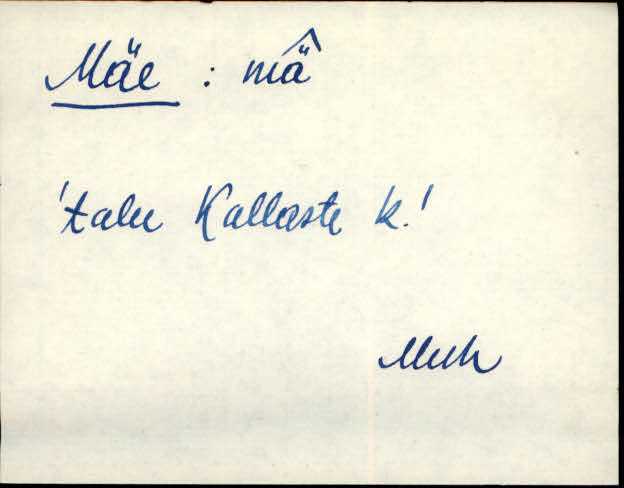 Mäe : mä̂
'talu Kallaste k.'
Muh